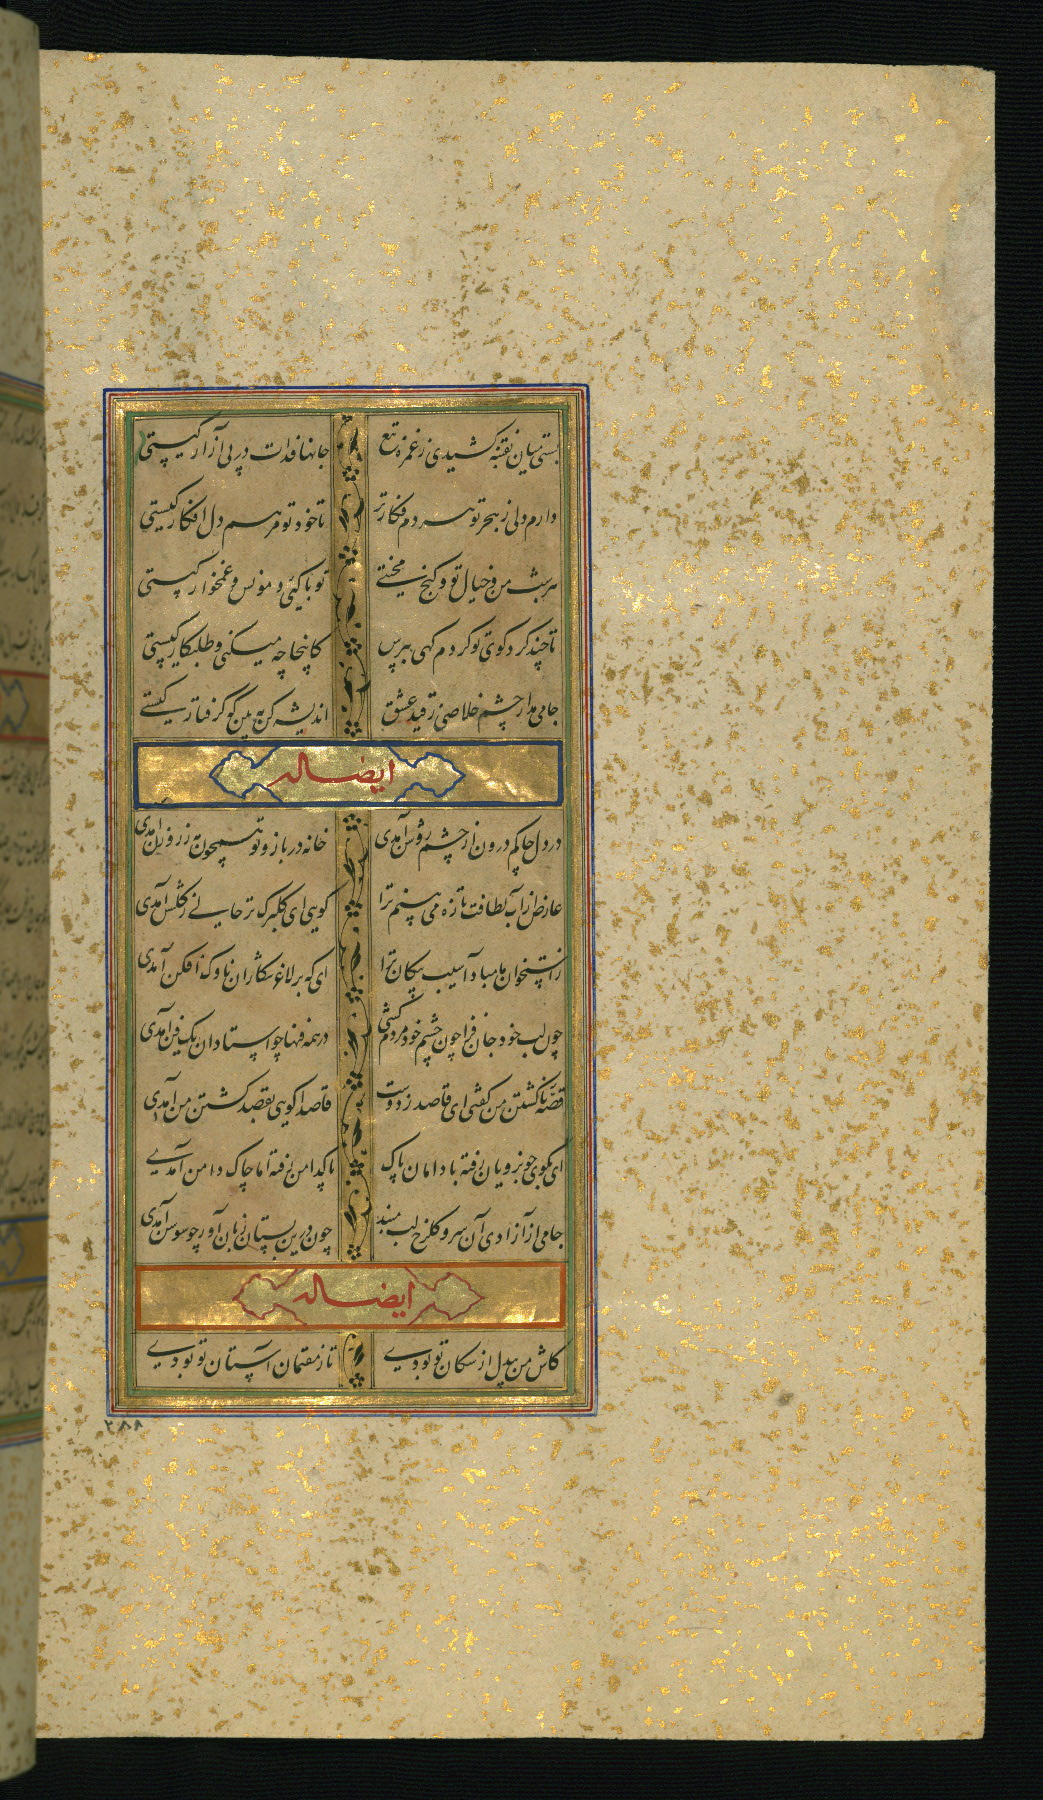 بستی میان بفتنه کشیدی ز غمزه تیغ جانها فدات در پی آزار کیستی
دارم دلی ز هجر تو هر دم فکارتر تا خود تو مرهم دل افکار کیستی
هر شب من و خیال تو و کنج محنتی تو با کئی و مونس و غمخوار کیستی
تا چند گرد کوی تو گردم گهی بپرس کاینجا چه میکنی و طلبکار کیستی
جامی مدار چشم خلاصی ز قید عشق اندیشه کن ببین که گرفتار کیستی
ایضا له
در دل چاکم درون از چشم روشن آمدی خانه در باز و تو همچون مه ز روزن آمدی
عارض از آب لطافت تازه می بینم ترا گویی ای گلبرگ تر حالی ز گلشن آمدی
ز استخوان ما مباد آسیب پیکان ترا ای که بر لاغر شکاران ناوک افکن آمدی
چون لب خود جان فزا چون چشم خود مردم کشی در همه فنها چو استادان یک فن آمدی
قصه ناکشتن من گفتی ای قاصد ز دوست قاصدا گویی بقصد کشتن من آمدی
ای بکوی خوبرویان رفته با دامان پاک پاکدامن رفته اما چاک دامن آمدی
جامی از آزادی آن سرو گلرخ لب مبند چون درین بستان زبان آور چو سوسن آمدی
ایضا له
کاش من بیدل از سگان تو بودی تا ز مقیمان آستان تو بودی
۲۸۸